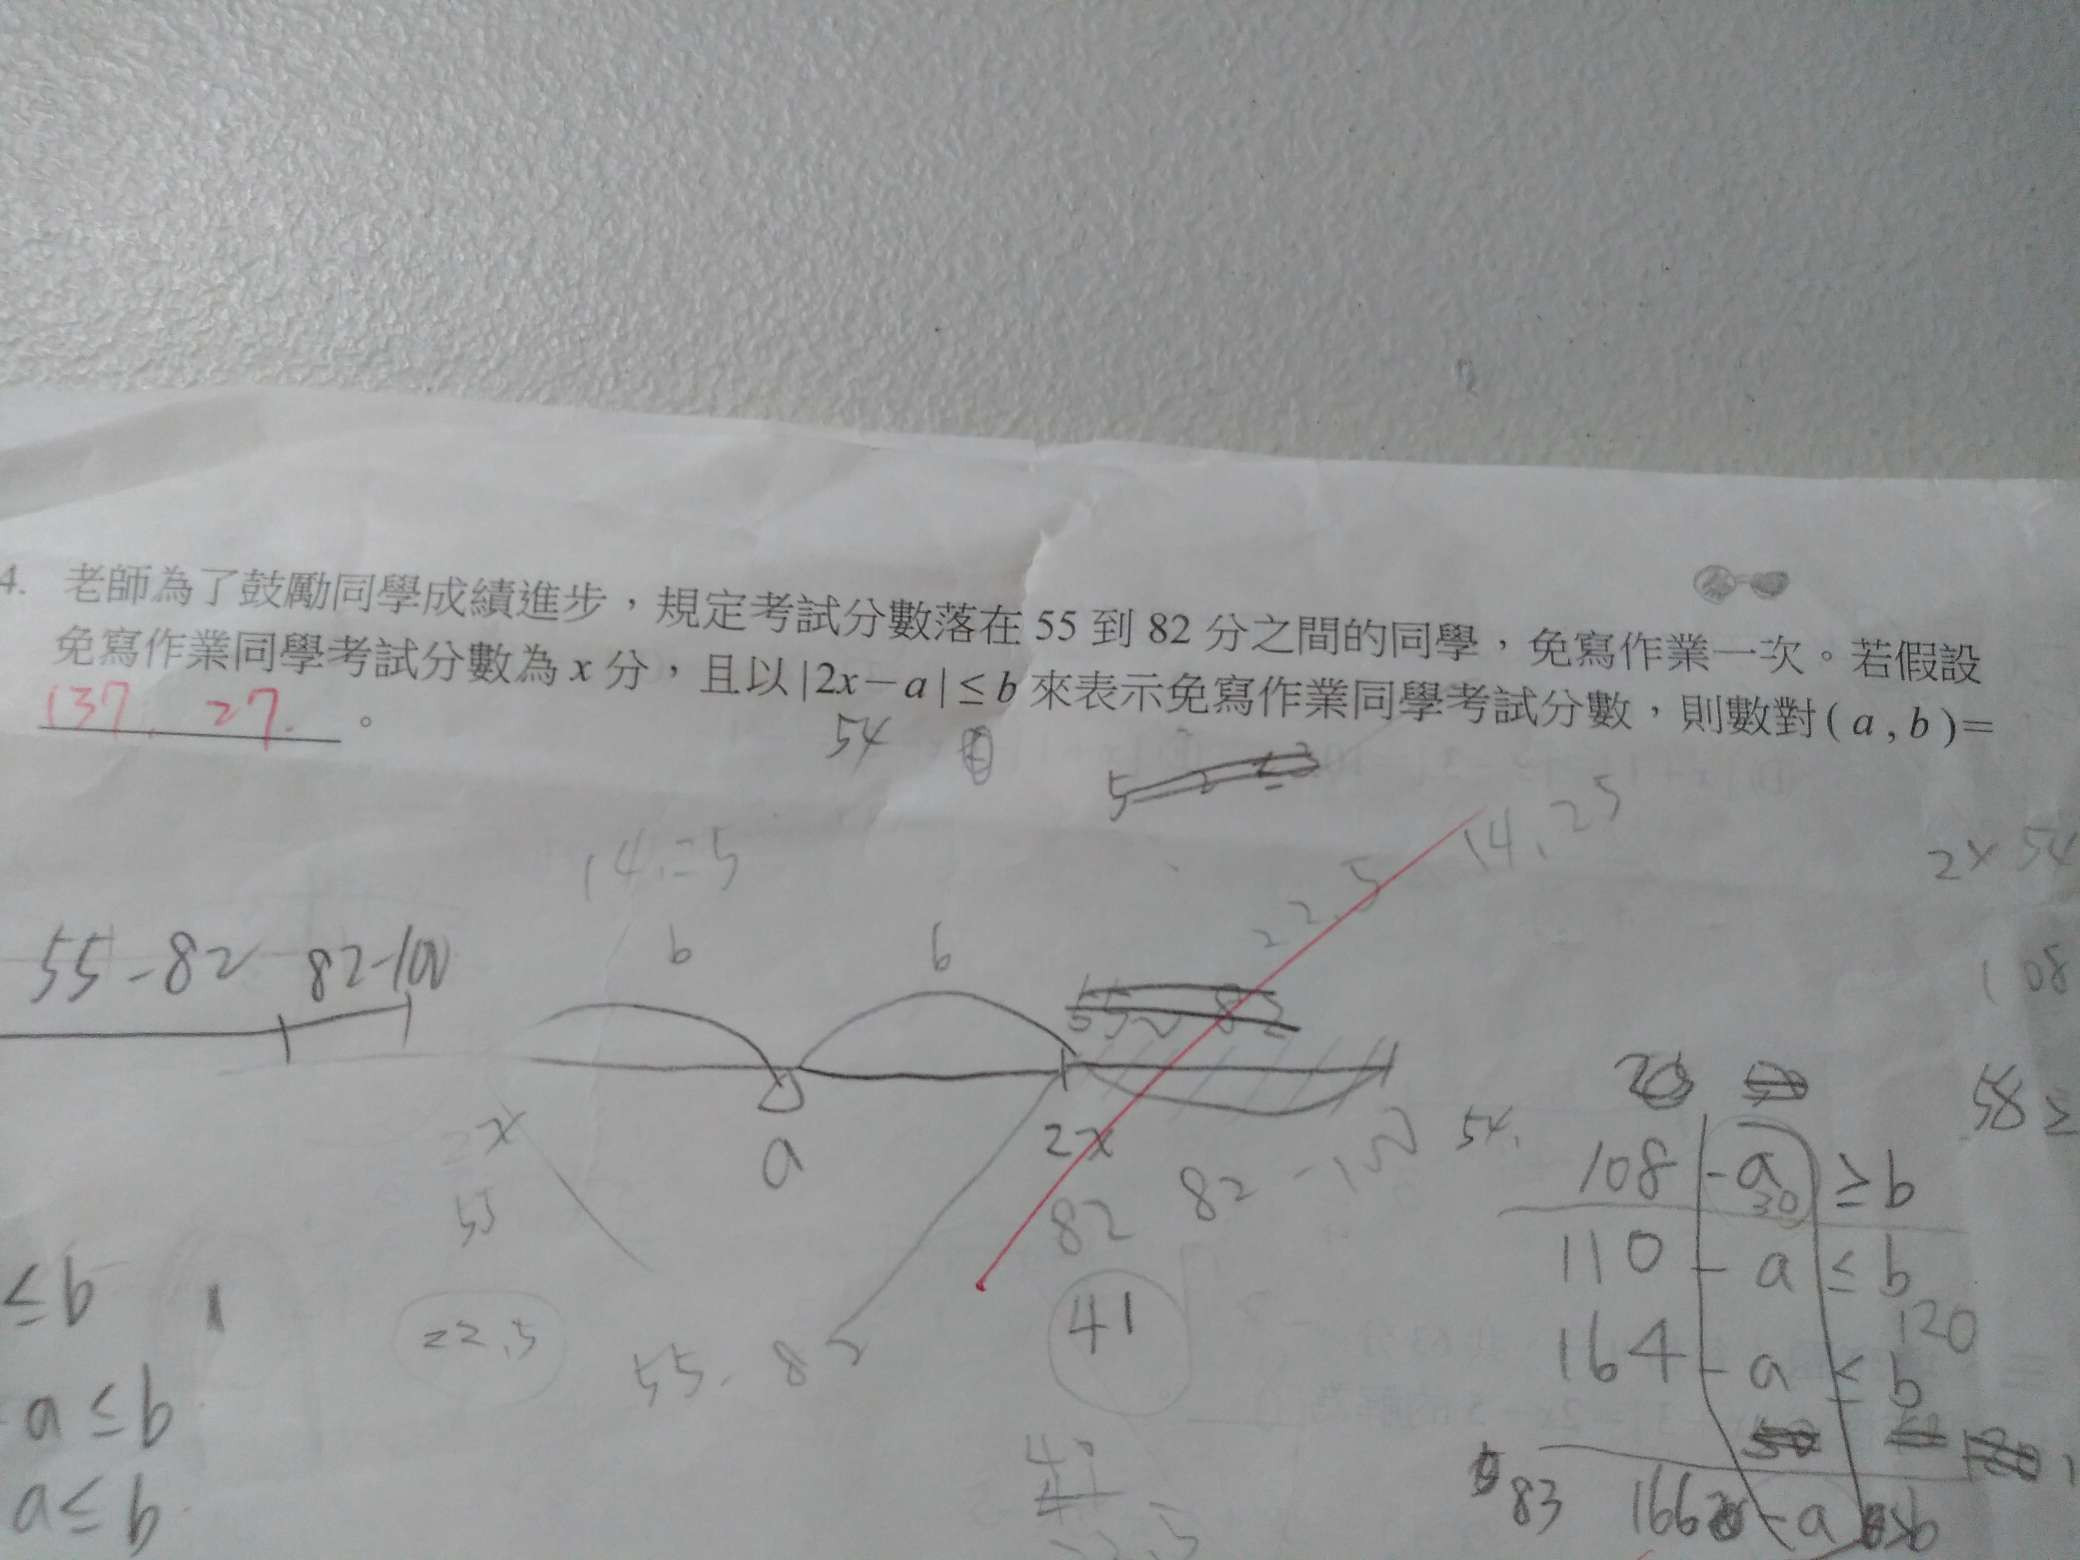 4. 老師為了鼓勵同學成績進步，規定考試分數落在 55 到 82 分之間的同學，免寫作業一次。若假設
免寫作業同學考試分數為 x 分，且以 |2x－a| ≤ b 來表示免寫作業同學考試分數，則數對 ( a , b )＝
137. 27. 。
54
14.25
2×54
55-82 82-100
b b
108
2x
a
2x
55
82
82-100
54.
58≥
108 -a ≥b
30
110 - a ≤ b
120
164 - a ≤ b
≤b
22.5
41
a≤b
a≤b
83 166 -a b